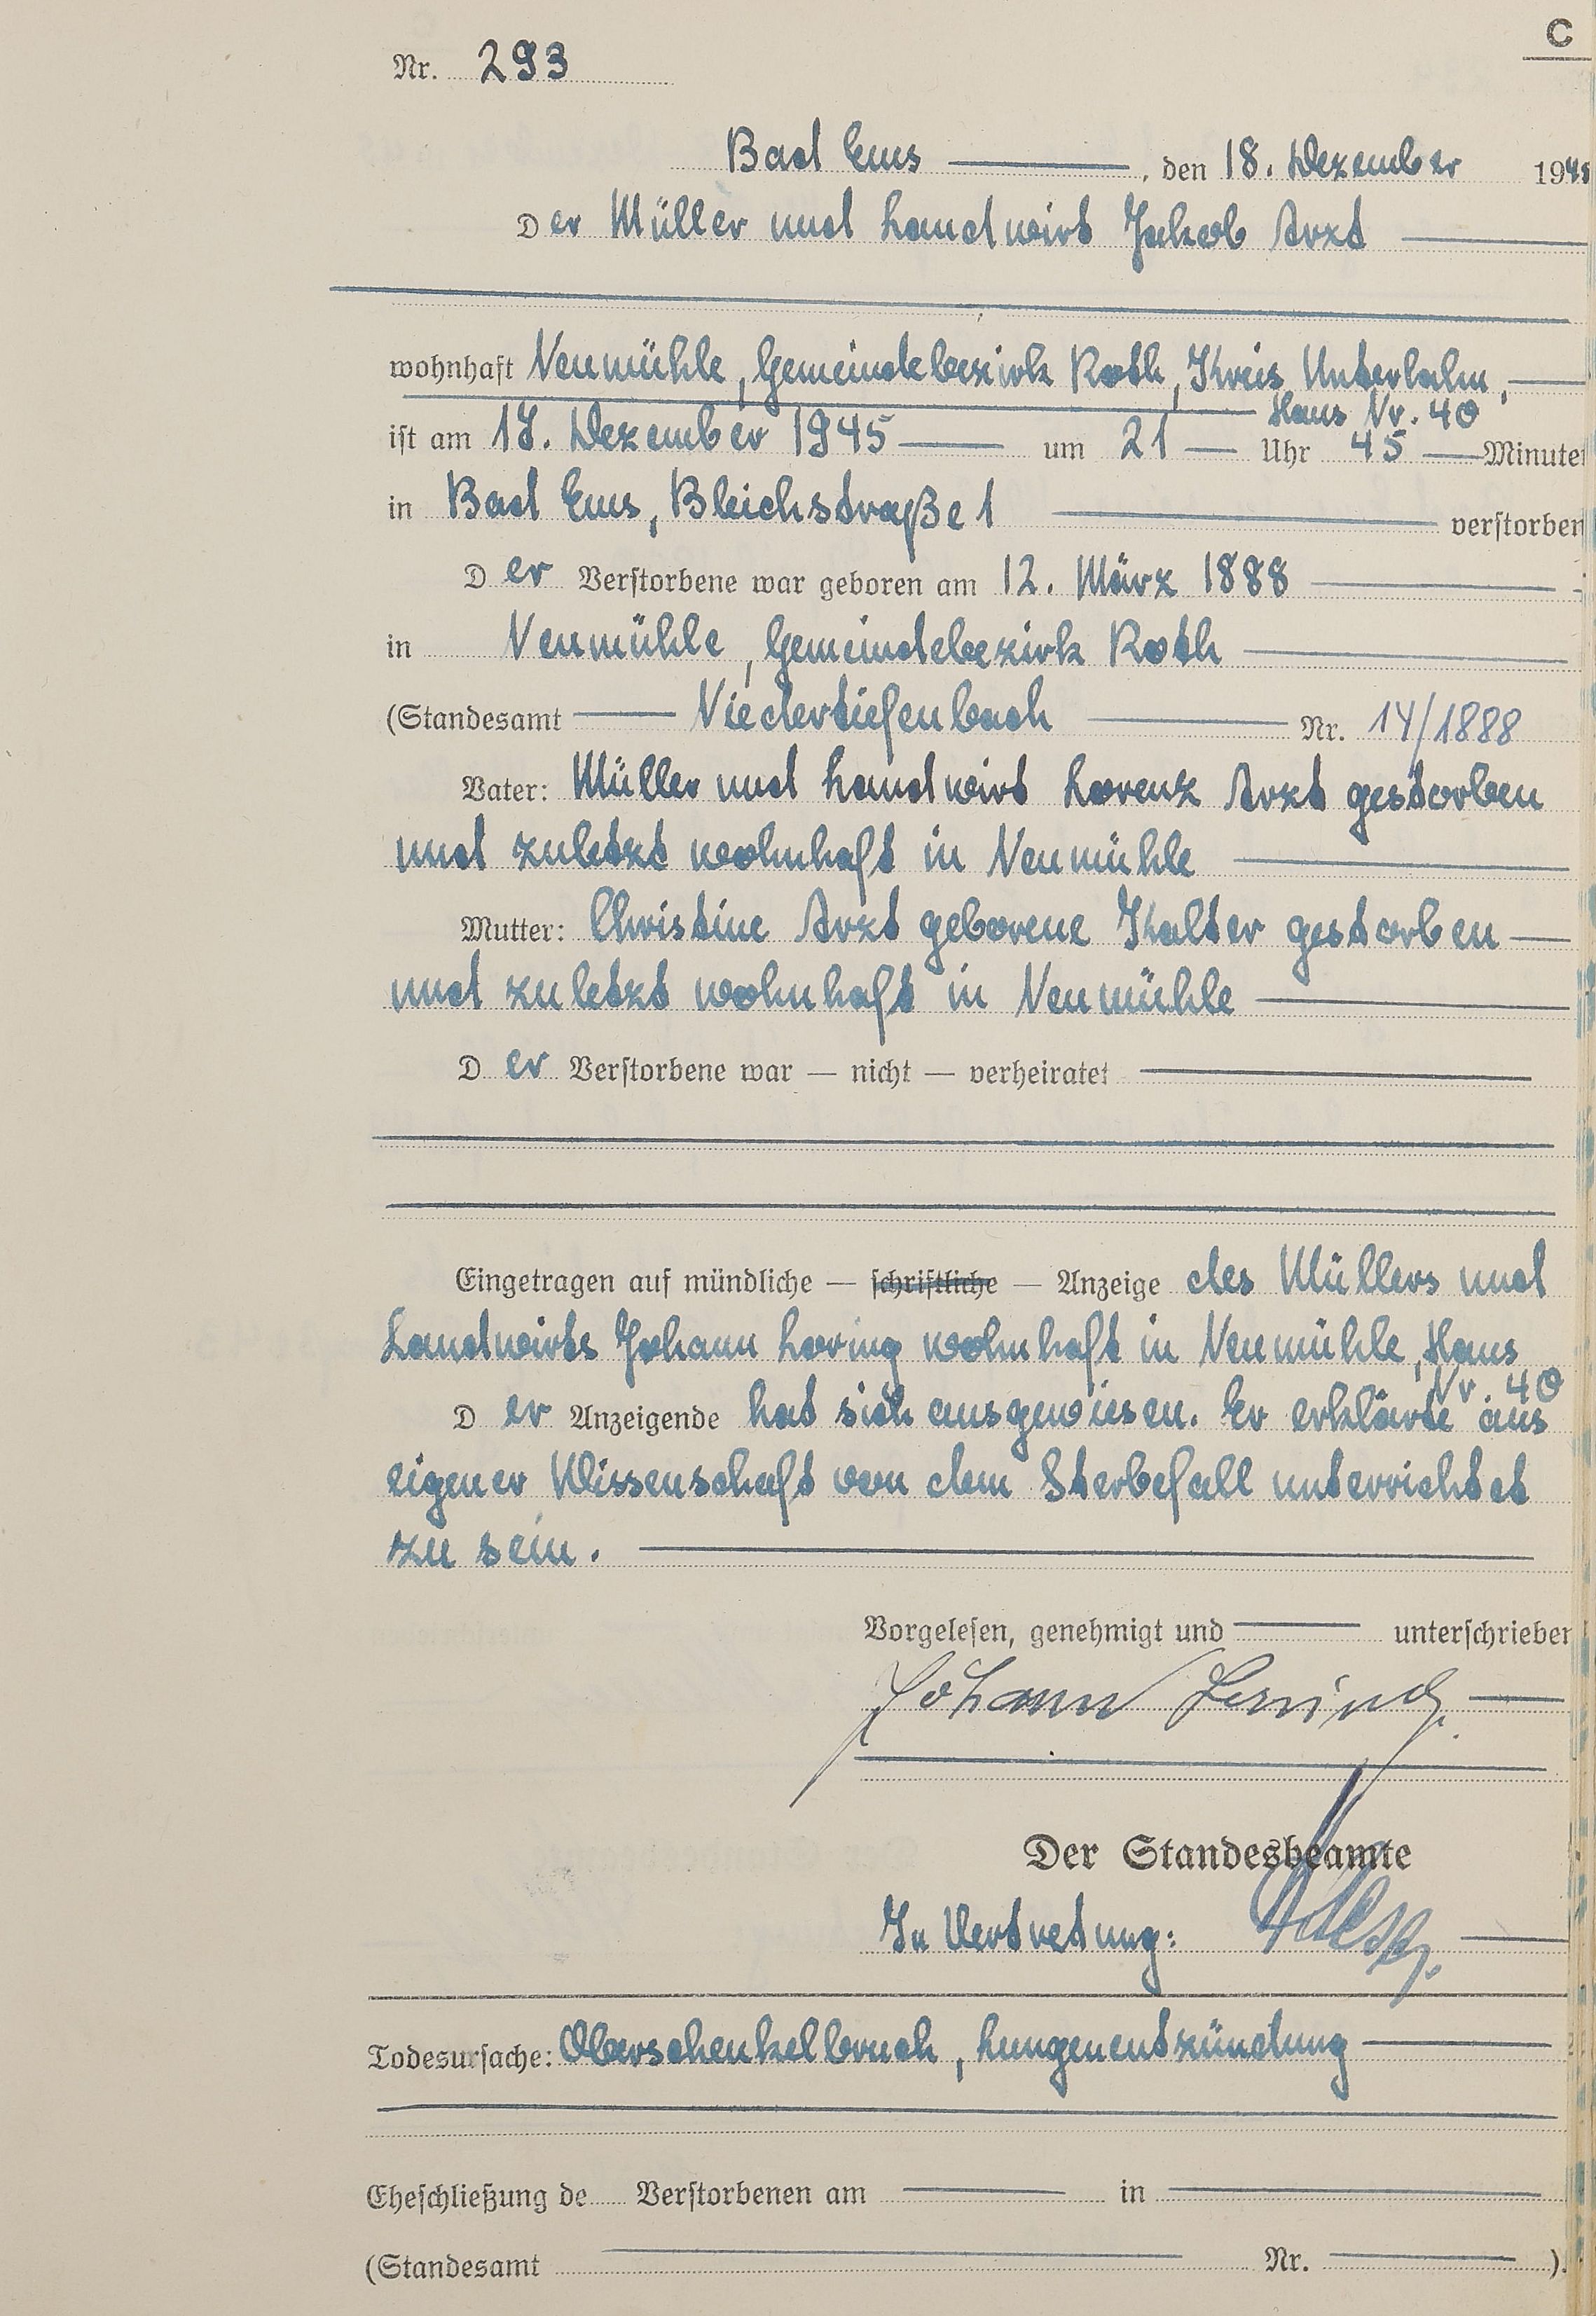 C
Nr. 293
Bad Ems, den 18. Dezember 1945
Der Müller und Landwirt Jakob Arzt
wohnhaft Neumühle, Gemeindebezirk Roth, Kreis Unterlahn,
Haus Nr. 40
ist am 17. Dezember 1945 um 21 Uhr 45 Minuten
in Bad Ems, Bleichstraße 1 verstorben
Der Verstorbene war geboren am 12. März 1888
in Neumühle, Gemeindebezirk Roth
(Standesamt Niedertiefenbach Nr. 14/1888
Vater: Müller und Landwirt Lorenz Arzt gestorben
und zuletzt wohnhaft in Neumühle
Mutter: Christine Arzt geborene Kalter gestorben
und zuletzt wohnhaft in Neumühle
Der Verstorbene war — nicht — verheiratet
Eingetragen auf mündliche — schriftliche — Anzeige des Müllers und
Landwirts Johann Loring wohnhaft in Neumühle, Haus
Nr. 40
Der Anzeigende hat sich ausgewiesen. Er erklärte aus
eigener Wissenschaft von dem Sterbefall unterrichtet
zu sein.
Vorgelesen, genehmigt und unterschrieben
Johann Loring
Der Standesbeamte
In Vertretung:
Todesursache: Oberschenkelbruch, Lungenentzündung
Eheschließung de Verstorbenen am in
(Standesamt Nr. ).